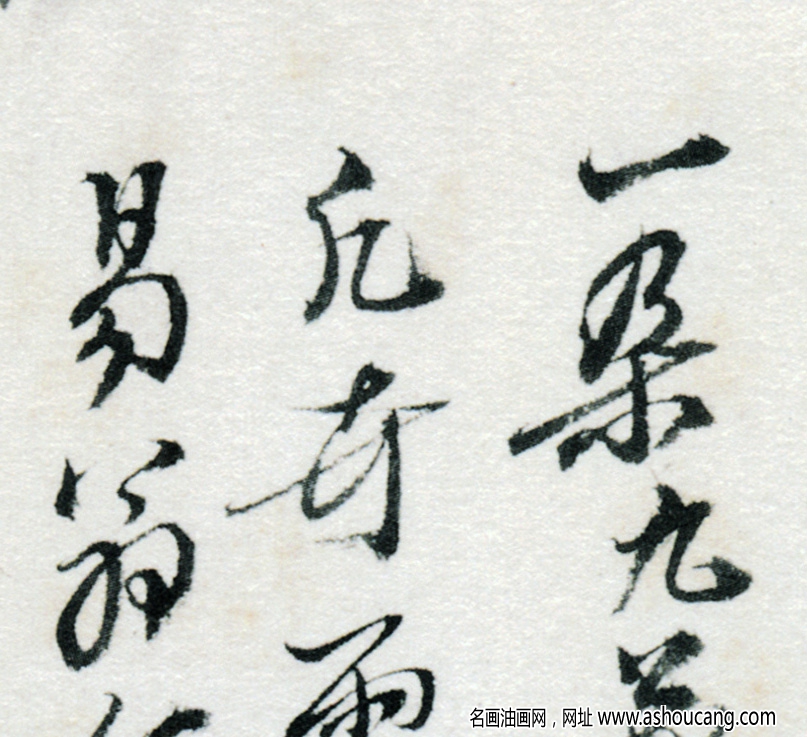 一朵九
凡卉
易翁
名画油画网，网址 www.ashoucang.com